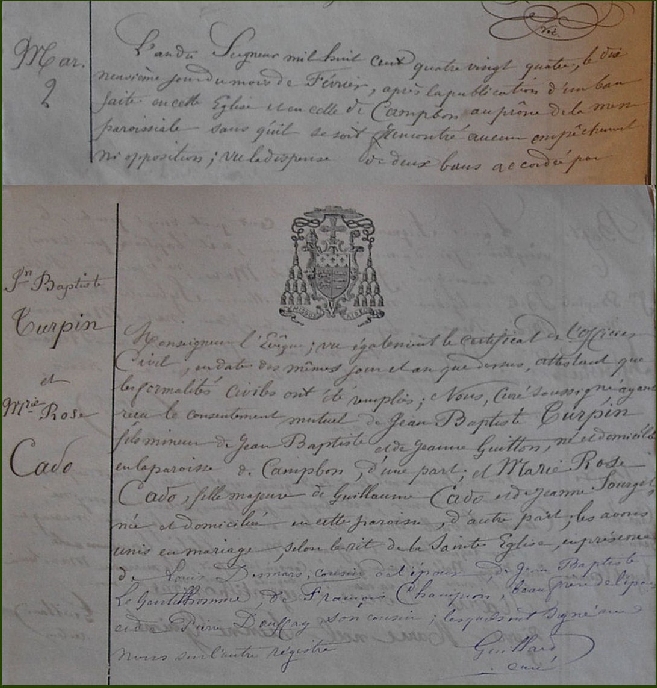 Mar.
2
L'an du Seigneur mil huit cent quatre vingt quatre, le dix
neuvième jour du mois de Février, après la publication d'un ban
faite en cette Eglise et en celle de Campbon au prône de la messe
paroissiale sans qu'il se soit rencontré aucun empêchement
ni opposition; vu la dispense de deux bans accordée par
Jn Baptiste
Turpin
et
Mrie Rose
Cado
Monseigneur l'Evêque; vu également le certificat de l'Officier
Civil, en date des mêmes jour et an que dessus, attestant que
les formalités civiles ont été remplies; Nous, Curé soussigné ayant
reçu le consentement mutuel de Jean Baptiste Turpin
fils mineur de Jean Baptiste et de Jeanne Guitton, né et domicilié
en la paroisse de Campbon, d'une part; et Marie Rose
Cado, fille majeure de Guillaume Cado et de Jeanne
née et domiciliée en cette paroisse, d'autre part, les avons
unis en mariage selon le rit de la Sainte Eglise, en présence
de Louis cousin de l'époux de Jean Baptiste
Le Gentilhomme, de François Champion, beau frère de l'épouse
et Pierre son cousin; lesquels ont signé avec
nous sur l'autre régistre
curé